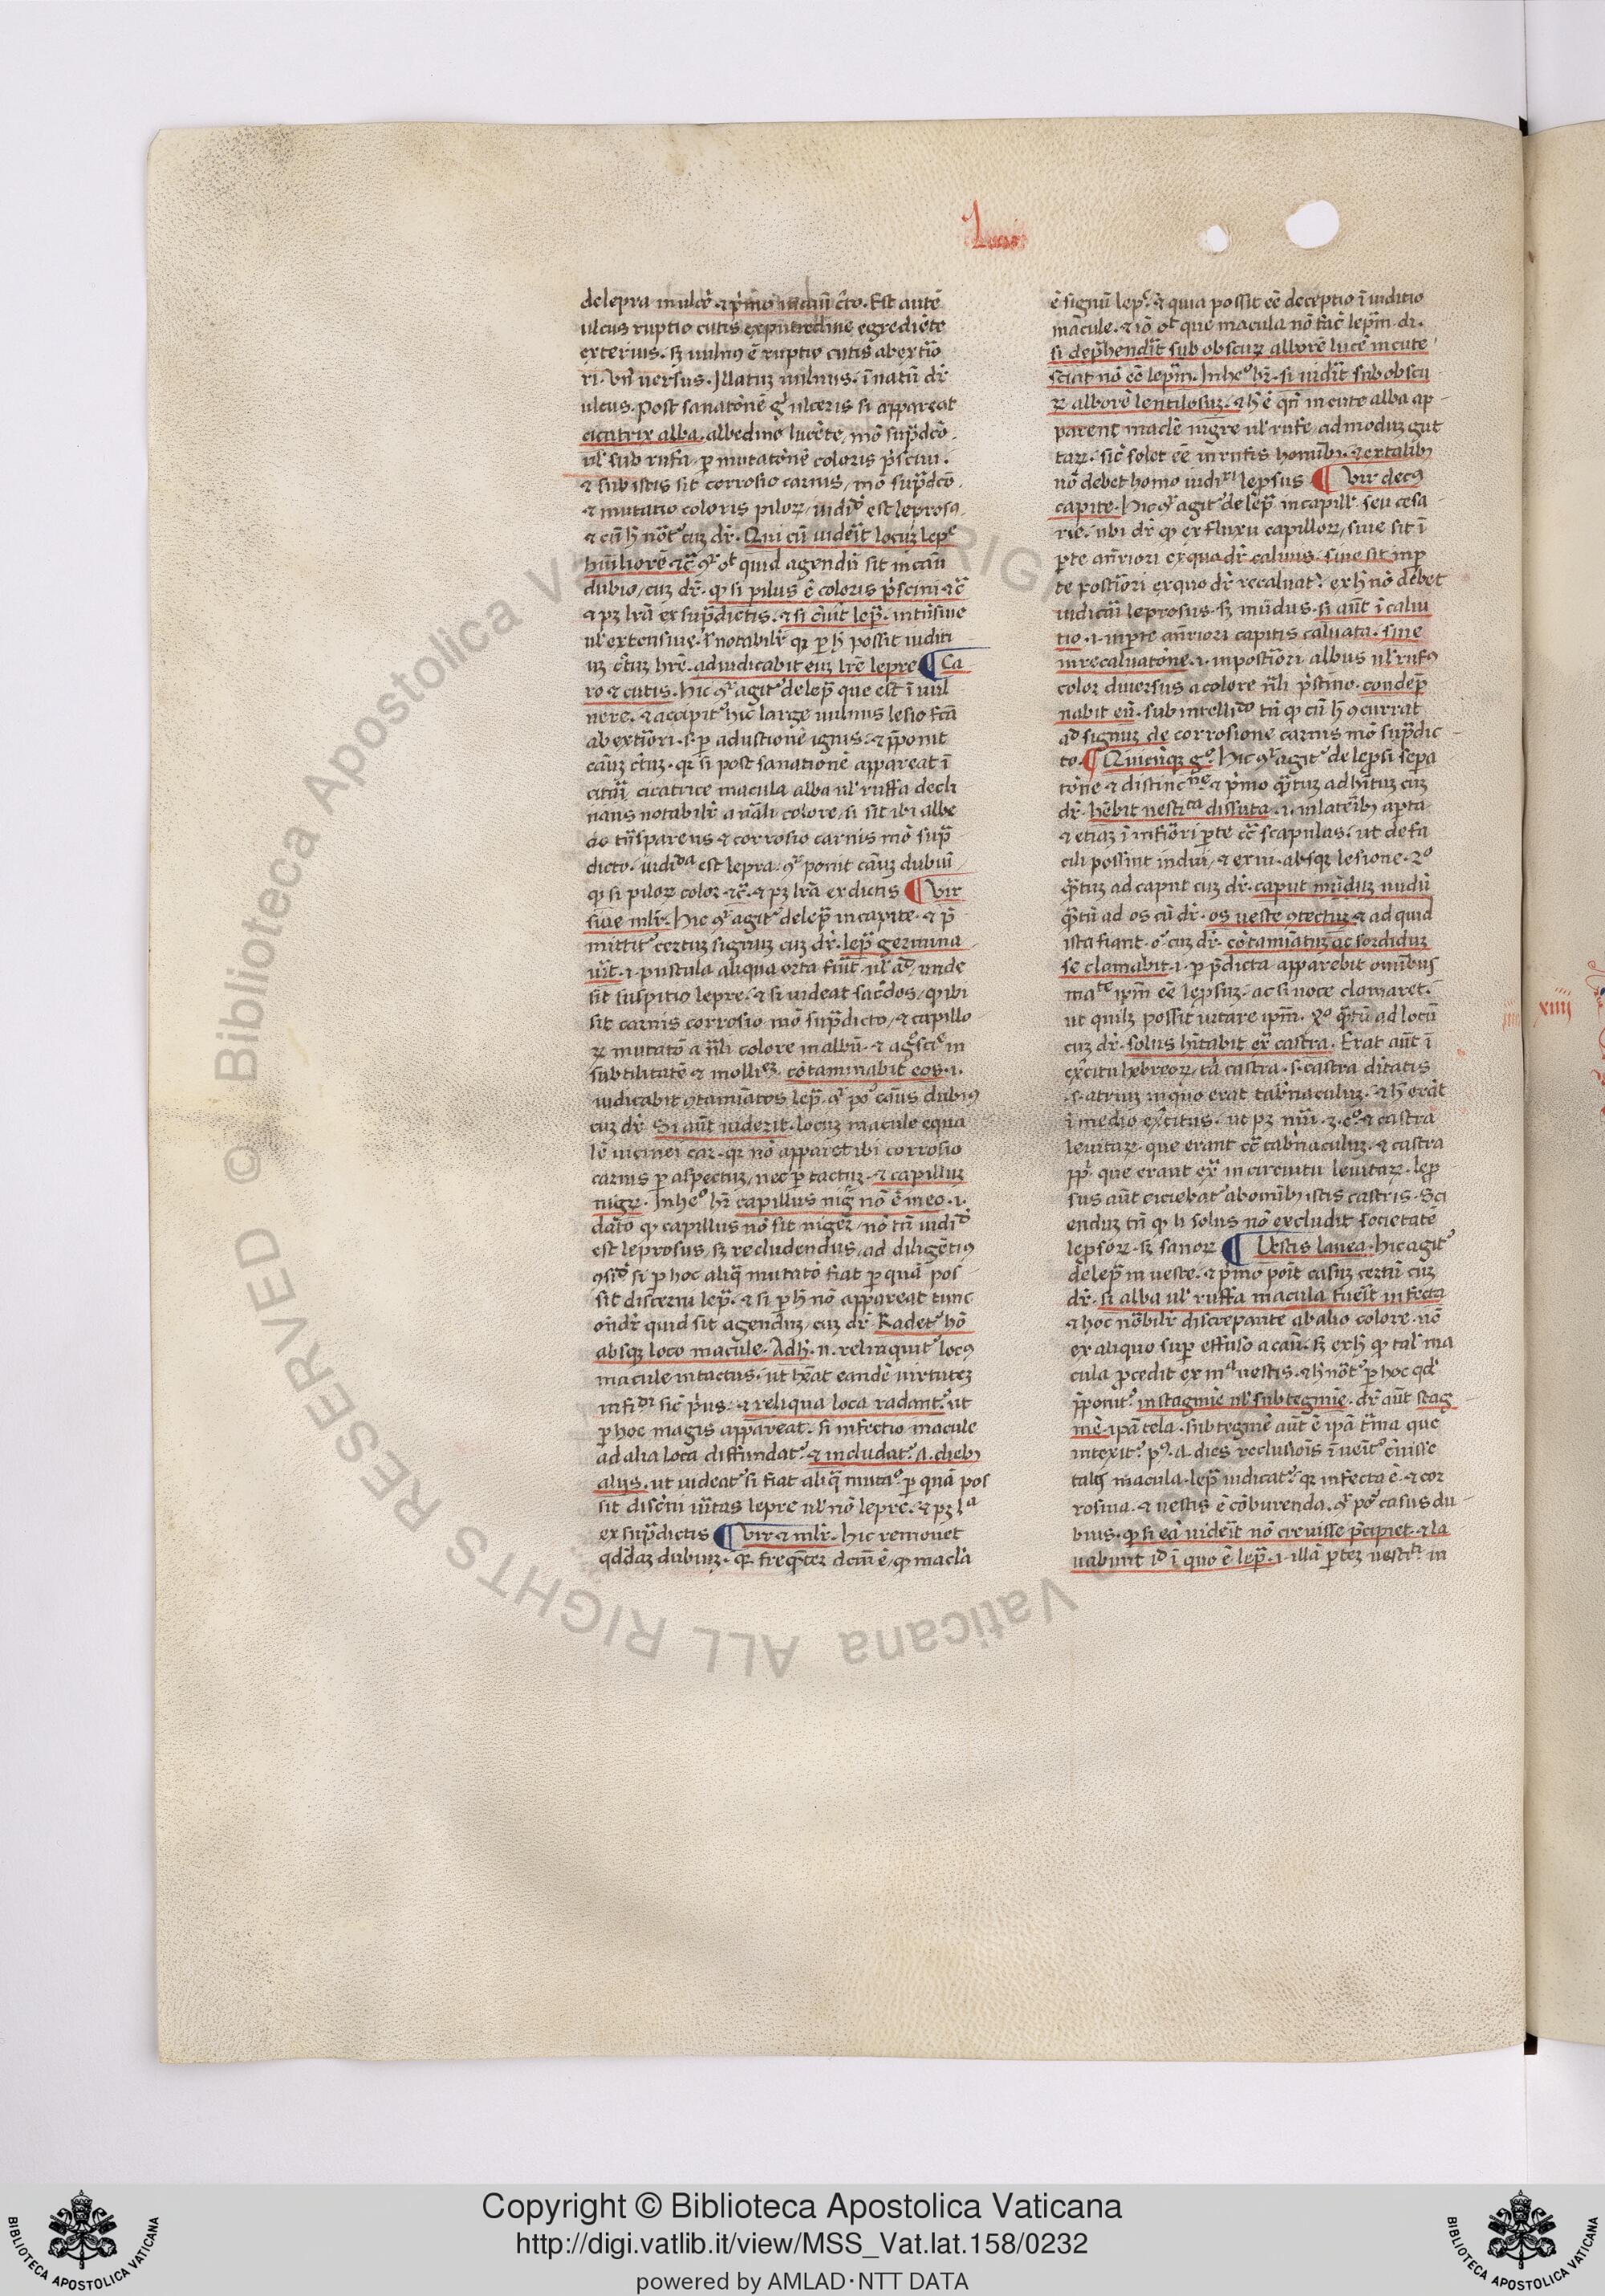 de lepra in ulcẽ. ⁊ pͥmo in cãu c̃to. Est autẽ
ulcus ruptio cutis ex putredine egrediẽte
exterius. sꝫ uulnꝰ ẽ ruptio cutis ab ext̃io
ri. vñ uersus. Illatuz uulnus. ĩnatũ dr̃
ulcus. Post sanatõnẽ gͥ ulceris si appareat
cicatrix alba. albedine lucẽte, mõ sup̃dcõ.
ul̃ sub rufa. ꝑ mutatõnẽ coloris pͥstini.
⁊ sub istis sit corrosio carnis, mõ sup̃dcõ.
⁊ mutatio coloris piloꝝ, iudiᵈ est leprosꝰ.
⁊ cũ ħ nõtᵘ cuz dr̃. Qui cũ uideĩt locuz lepᵉ
huĩliorẽ ⁊c̃ qͬ oᵗ quid agendũ sit in cãu
dubio, cuz dr̃. ꝙ si pilus ẽ coloris pͥstini ⁊c̃
⁊ pꝫ lr̃a ex sup̃dictis. ⁊ si c̃uit lep̃. intẽsiue
ul̃ extensiue. ĩ notabilr̃ qꝛ ꝑ ħ possit iuditi
uz c̃tuz hr̃e. adiudicabit euz lr̃e lepre ¶ Ca
ro ⁊ cutis. hic qͬ agitᵘ de lep̃ que est ĩ uul
nere. ⁊ accipitᵘ hic large uulnus lesio fcã
ab ext̃iori. s. ꝑ adustionẽ ignis. ⁊ p̃ponit
cãuz c̃tuz. qꝛ si post sanationẽ appareat ĩ
cicatrice macula alba ul̃ ruffa decli
nans notabilr̃ a nãli colore, si sit ibi albe
do tñsparens ⁊ corrosio carnis mõ sup̃
dicto. iudiᵈᵃ est lepra. qͬ ponit cãuz dubiũ
ꝙ si piloꝝ color ⁊c̃. ⁊ pꝫ lr̃a ex dictis ¶ Vir
siue mlr̃. Hic qͬ agitᵘ de lep̃ in capite. ⁊ p̃
mittitᵘ certuz signuz cuz dr̃. lep̃ germina
uĩt. i. pustula aliqua orta fũit ul̃ aᵈ, unde
sit suspitio lepre. ⁊ si uideat sac̃dos, ꝙ ibi
sit carnis corrosio mõ sup̃dicto, ⁊ capillo
ꝝ mutatõ a nãli colore in albũ. ⁊ in
subtilitatẽ ⁊ cõtaminabit eos. i.
iudicabit ꝯtamiãtos lep̃. qͬ põᵗ cãus dubiꝰ
cuz dr̃. Si aũt uiderit. locuz macule equa
lẽ uicinei car. qꝛ nõ apparet ibi corrosio
carnis ꝑ aspectuz, nec ꝑ tactuz. ⁊ capilluz
nigꝝ. In heᵒ hr̃ capillus nig̃ nõ ẽ in eo. i.
dãto ꝙ capillus nõ sit niger, nõ tñ iudiᵈ
est leprosus, sꝫ recludendus, ad diligẽtiꝰ
ꝯsiᵈ si ꝑ hoc aliq̃ mutatõ fiat ꝑ quã pos
sit discerni lep̃. ⁊ si ꝑ ħ nõ appareat tunc
oñdr̃ quid sit agenduz, cuz dr̃ Radetᵘ hõ
absqꝫ loco macule. Adħ. n. relinquitᵘ locꝰ
macule intactus. ut hẽat eandẽ uirtutez
sic̃ pͥus. ⁊ reliqua loca radantᵘ. ut
ꝑ hoc magis appareat. si infectio macule
ad alia loca diffundatᵘ. ⁊ includatᵘ. ⁊. diebꝫ
alijs. ut uideatᵘ si fiat aliq̃ mutaᵒ. ꝑ quã pos
sit disc̃ni ũitas lepre ul̃ nõ lepre. ⁊ pꝫ lᵃ
ex sup̃dictis ¶ Vir ⁊ mlr̃. hic remouet
qd̃daz dubiuz. qꝛ freq̃ter dcm̃ ẽ, ꝙ macl̃a
Leuiti
ẽ signũ lepᵉ. ⁊ quia possit eẽ deceptio ĩ iuditio
macule. ⁊ iõ oᵗ que macula nõ fac̃ lepm̃. dr̃.
si dep̃hendĩt sub obscuꝝ alborẽ lucẽ in cute
sciat nõ eẽ lepm̃. In heᵒ hr̃. si uidĩt sub obscu
ꝝ alborẽ lentilosuz. ⁊ ħ ẽ qñ in cute alba ap
parent macl̃e nigre ul̃ rufe, ad moduz gut
taꝝ. sic̃ solet eẽ in rufis homĩbꝫ. ⁊ ex talibꝫ
nõ debet homo iudiʳⁱ lep̃sus ¶ Vir de cꝰ
capite. Hic qͬ agitᵘ de lep̃ in capill̃ seu cesa
rie. ubi dr̃ ꝙ ex fluxu capilloꝝ, siue sit ĩ
ꝑte añriori ex qua dr̃ caluus. siue sit in ꝑ
te postĩori ex quo dr̃ recaluatᵘ. ex ħ nõ debet
iudicari leprosus. sꝫ mũdus. si aũt ĩ calui
tio. i. in ꝑte añriori capitis caluata. siue
in recaluatõne. i. in postĩori. albus ul̃ rufꝰ
color diuersus a colore nãli pͥstino. condep̃
nabit eũ. subintelliᵈᵒ tñ ꝙ cũ ħ ꝯcurrat
aᵈ signuz de corrosione carnis mõ sup̃dic
to. ¶ Quicũqꝫ gᵒ. Hic qͬ agitᵘ de lep̃si sep̃a
tõne ⁊ distincⁿᵉ. ⁊ pͥmo q̃tuz ad hĩtuz cuz
dr̃. hẽbit uestiᵗᵃ dissuta. i. in laterĩbꝫ aꝑta
⁊ etiaz ĩ infĩori ꝑte cc̃ scapulas. ut de fa
cili possint indui, ⁊ exui. absqꝫ lesione. 2ᵒ
q̃tuz ad caput cuz dr̃. caput nuduz nudũ
q̃tũ ad os cũ dr̃. os ueste ꝯtectuz. ⁊ ad quid
ista fiant. oᵗ cuz dr̃. cõtamiatuz ac sordiduz
se clamabit. i. ꝑ p̃dicta apparebit omĩbus
ip̃m eẽ lep̃suz. ac si uoce clamaret.
ut quilꝫ possit uitare ip̃m. q̃tũ ad locũ
cuz dr̃. solus hĩtabit ex̃ castra. Erat aũt ĩ
exc̃itu hebreoꝝ tᵃ castra. s. castra dĩtatis
.s. atrium in quo erat tab̃naculuz. ⁊ ħ erãt
ĩ medio exc̃itus. ut pꝫ nũi. 2. cᵒ. ⁊ castra
leuitaꝝ. que erant cc̃ tab̃naculuz. ⁊ castra
ppͥ. que erant ex̃ in circuitu leuitaꝝ. lep̃
sus aũt eiciebatᵘ ab omĩbꝫ istis castris. Sci
enduz tñ ꝙ li solus nõ excludit societatẽ
lep̃soꝝ. sꝫ sanoꝝ ¶ Vestis lanea. hic agitᵘ
de lep̃ in ueste. ⁊ pͥmo põit casuz certũ cuz
dr̃. si alba ul̃ ruffa macula fueĩt infecta
⁊ hoc nõbilr̃ discrepante ab alio colore. nõ
ex aliquo suꝑ effuso a cãu. sꝫ ex ħ ꝙ tal̃ ma
cula ꝓcedit ex mᵃ uestis. ⁊ ħ nõtᵘ ꝑ hoc qd̃
p̃ponitᵘ. in stagmie ul̃ subtegmie. dr̃ aũt stag
mẽ. ip̃a tela. subtegmẽ aũt ẽ ip̃a trãma que
intexitᵘ. pꝰ. ⁊. dies reclusiõis ĩ ueĩtᵘ c̃uisse
talis macula. lep̃ iudicatᵘ. qꝛ infecta ẽ. ⁊ cor
rosiua. ⁊ uestis ẽ cõburenda. qͬ põᵗ casus du
bius. ꝙ si eã uideĩt nõ creuisse p̃cipiet. ⁊ la
uabunt iᵈ ĩ quo ẽ lep̃. i. illã ꝑtez uestiᵗⁱ in
xiiii
Copyright © Biblioteca Apostolica Vaticana
http://digi.vatlib.it/view/MSS_Vat.lat.158/0232
powered by AMLAD·NTT DATA
BIBLIOTECA APOSTOLICA VATICANA
BIBLIOTECA APOSTOLICA VATICANA